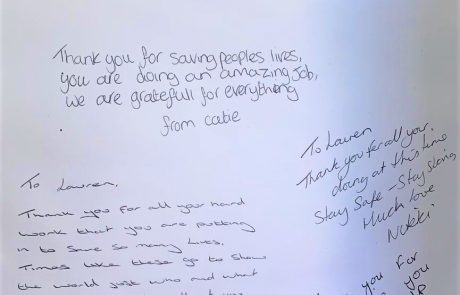 Thank you for saving peoples lives,
you are doing an amazing job,
we are gratefull for everything
from catie
To Lauren
Thank you for all your
doing at this time
Stay Safe - Stay
Much love
Nikki
To Lauren,
Thank you for all your hard
work that you are putting
in to save so many lives.
Times like these go to show
the world just who and what
you for
you